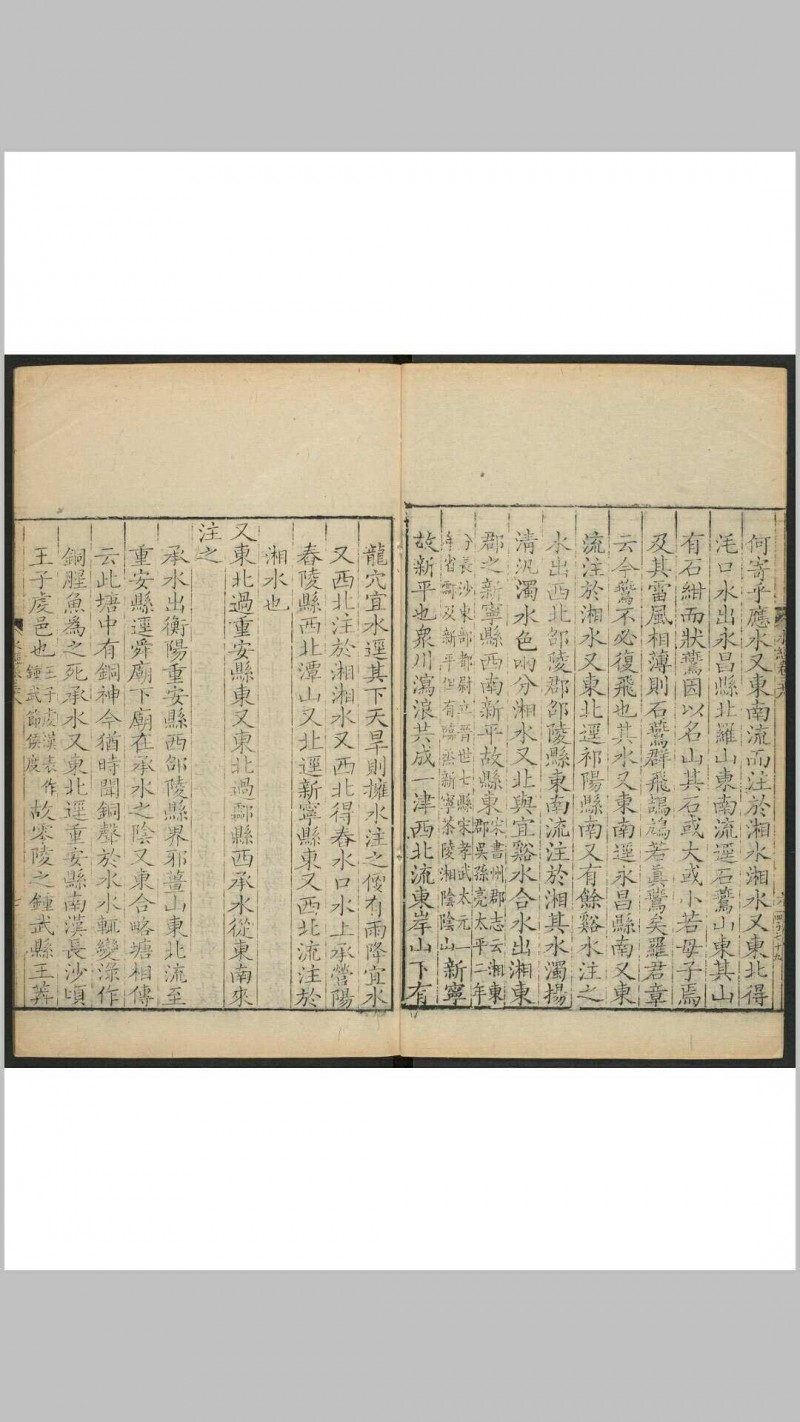 何寄乎應水又東南流而注於湘水湘水又東北得
洭口水出永昌縣北羅山東南流逕石鷰山東其山
有石紺而狀鷰因以名山其石或大或小若母子焉
及其雷風相薄則石鷰群飛頡頏若眞鷰矣羅君章
云今鷰不必復飛也其水又東南逕永昌縣南又東
流注於湘水又東北逕祁陽縣南又有餘谿水注之
水出西北邵陵郡邵陵縣東南流注於湘其水濁揚
清汎濁水色兩分湘水又北與宜谿水合水出湘東
郡之新寧縣西南新平故縣東宋書州郡志云湘東郡吳孫亮太平二年
分長沙東部都尉立晉世七縣宋孝武太元二十年省酃及新平但有臨烝新寧茶陵湘陰陰山新寧
故新平也衆川瀉浪共成一津西北流東岸山下有
龍穴宜水逕其下天旱則擁水注之便有雨降宜水
又西北注於湘湘水又西北得舂水口水上承營陽
舂陵縣西北潭山又北逕新寧縣東又西北流注於
湘水也
又東北過重安縣東又東北過酃縣西承水從東南來
注之
承水出衡陽重安縣西邵陵縣界邪薑山東北流至
重安縣逕舜廟下廟在承水之陰又東合略塘相傳
云此塘中有銅神今猶時聞銅聲於水水輒變淥作
銅腥魚爲之死承水又東北逕重安縣南漢長沙頃
王子度邑也王子度漢表作鍾武節侯度故零陵之鍾武縣王莽